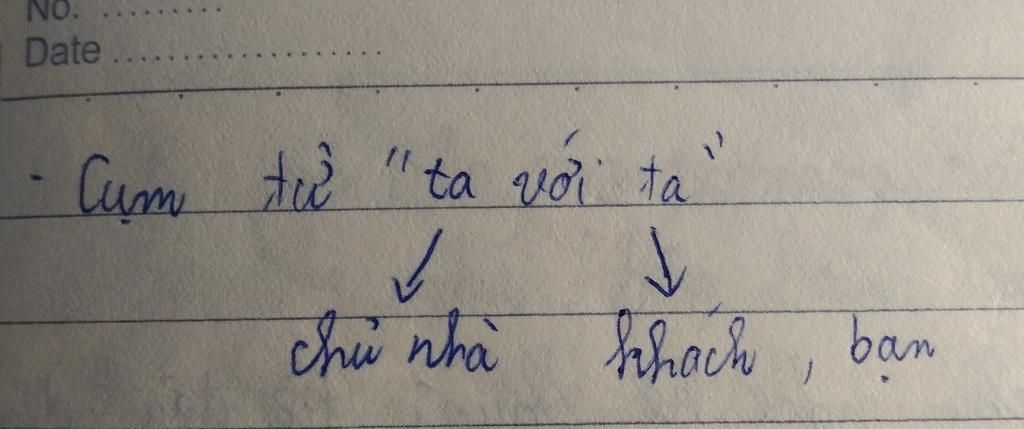 No. .........
Date ...................
- Cụm từ "ta với ta"
↙ ↘
chủ nhà khách, bạn